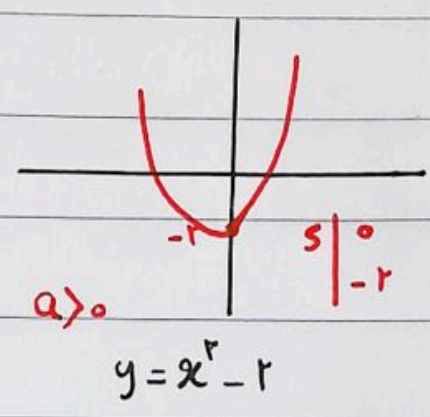 -۲
S | ۰
-۲
a>۰
y = x^۲ - ۲